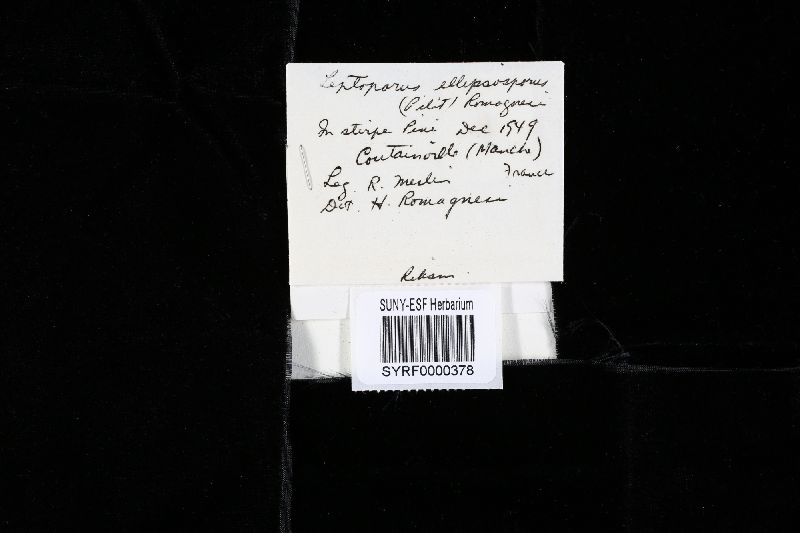 Leptoporus ellepsosporus
(Pilát) Romagnesi
In stirpe Pini Dec 1949
Coutainville (Manche)
France
Leg. R. Meslin
Det. H. Romagnesi
SUNY-ESF Herbarium
SYRF0000378